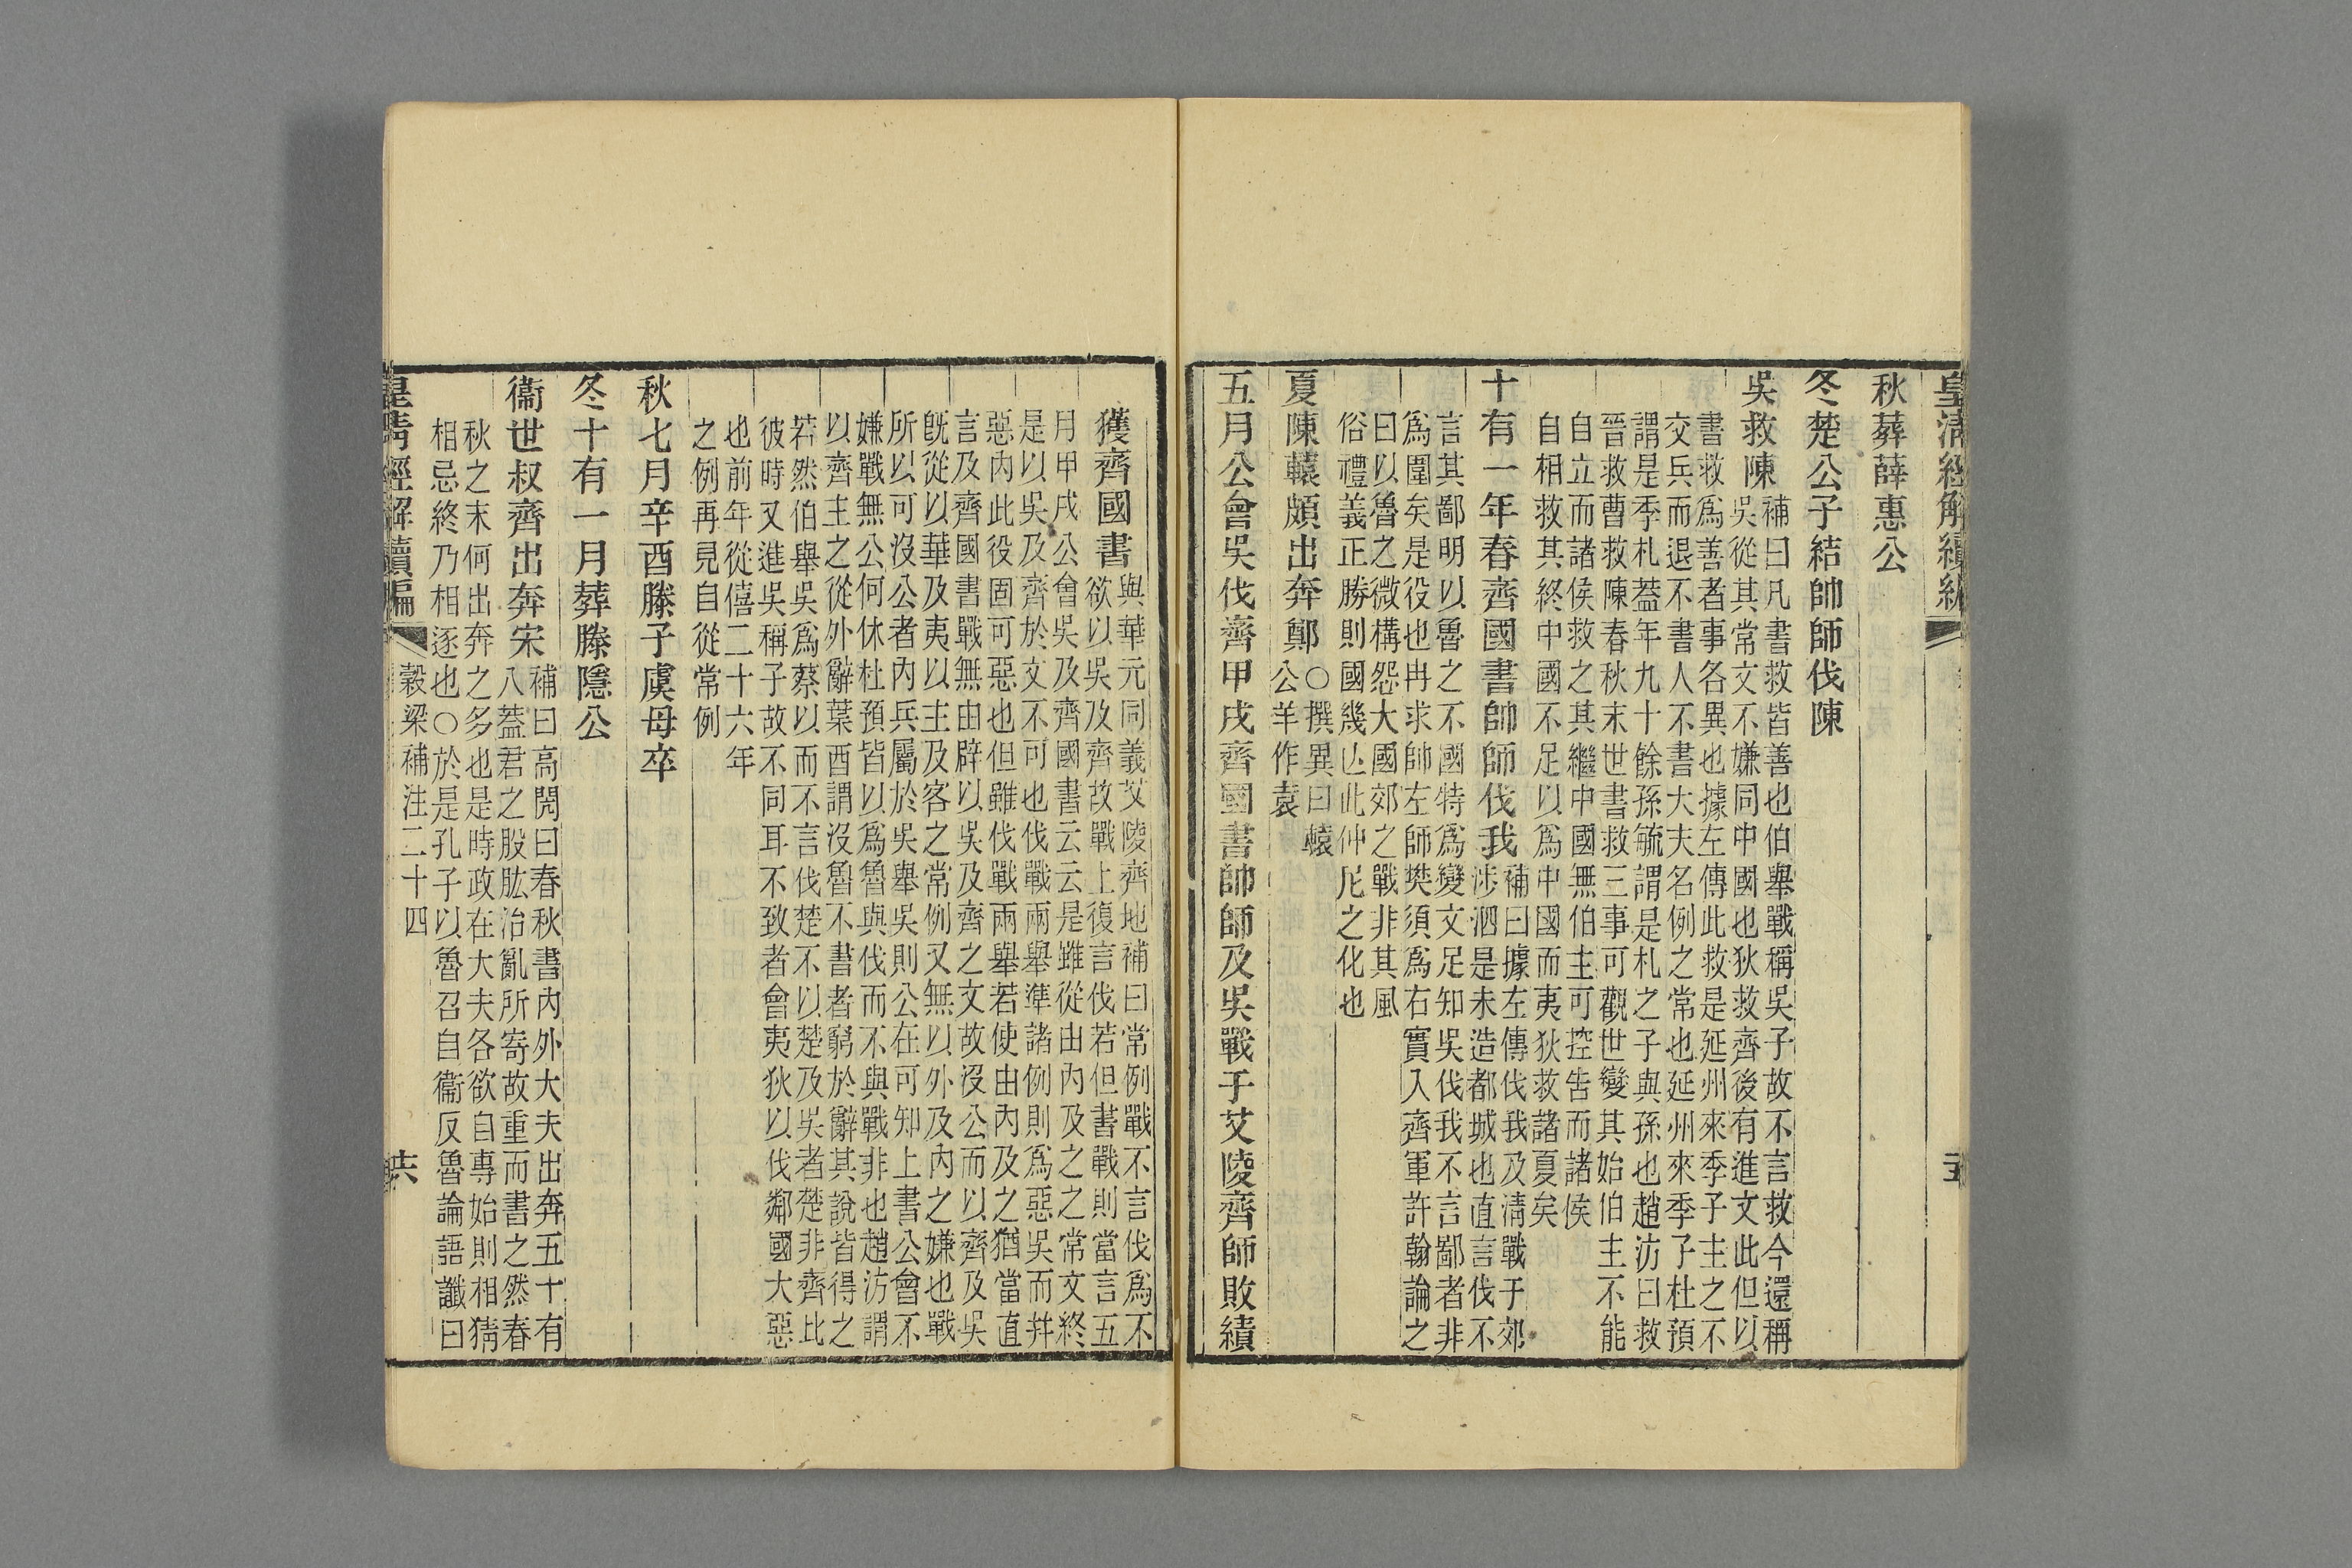 皇清經解續編
秋葬薛惠公
冬楚公子結帥師伐陳
吳救陳
補曰凡書救皆善也伯舉戰稱吳子故不言救今還稱
吳從其常文不嫌同中國也狄救齊後有進文此但以
書救爲善者事各異也據左傳此救是延州來季子主之不
交兵而退不書人不書大夫名例之常也延州來季子杜預
謂是季札蓋年九十餘孫毓謂是札之子與孫也趙汸曰救
晉救曹救陳春秋末世書救三事可觀世變其始伯主不能
自立而諸侯救之其繼中國無伯主可控告而諸侯
自相救其終中國不足以爲中國而夷狄救諸夏矣
十有一年春齊國書帥師伐我
補曰據左傳伐我及清戰于郊
涉泗是未造都城也直言伐不
言其鄙明以魯之不國特爲變文足知吳伐我不言鄙者非
爲圍矣是役也冉求帥左師樊須爲右實入齊軍許翰論之
曰以魯之微構怨大國郊之戰非其風
俗禮義正勝則國幾亾此仲尼之化也
夏陳轅頗出奔鄭
○撰異曰轅
公羊作袁
五月公會吳伐齊甲戌齊國書帥師及吳戰于艾陵齊師敗績
獲齊國書
與華元同義艾陵齊地補曰常例戰不言伐爲不
欲以吳及齊故戰上復言伐若但書戰則當言五
月甲戌公會吳及齊國書云云是雖從由內及之之常文終
是以吳及齊於文不可也伐戰兩舉準諸例則爲惡吳而幷
惡內此役固可惡也但雖伐戰兩舉若使由內及之猶當直
言及齊國書戰無由辟以吳及齊之文故沒公而以齊及吳
旣從以華及夷以主及客之常例又無以外及內之嫌也戰
所以可沒公者內兵屬於吳舉吳則公在可知上書公會不
嫌戰無公何休杜預皆以爲魯與伐而不與戰非也趙汸謂
以齊主之從外辭葉酉謂沒魯不書者窮於辭其說皆得之
若然伯舉吳爲蔡以而不言伐楚不以楚及吳者楚非齊比
彼時又進吳稱子故不同耳不致者會夷狄以伐鄰國大惡
也前年從僖二十六年
之例再見自從常例
秋七月辛酉滕子虞母卒
冬十有一月葬滕隱公
衞世叔齊出奔宋
補曰高閌曰春秋書內外大夫出奔五十有
八蓋君之股肱治亂所寄故重而書之然春
秋之末何出奔之多也是時政在大夫各欲自專始則相猜
相忌終乃相逐也○於是孔子以魯召自衞反魯論語讖曰
皇清經解續編
穀梁補注二十四